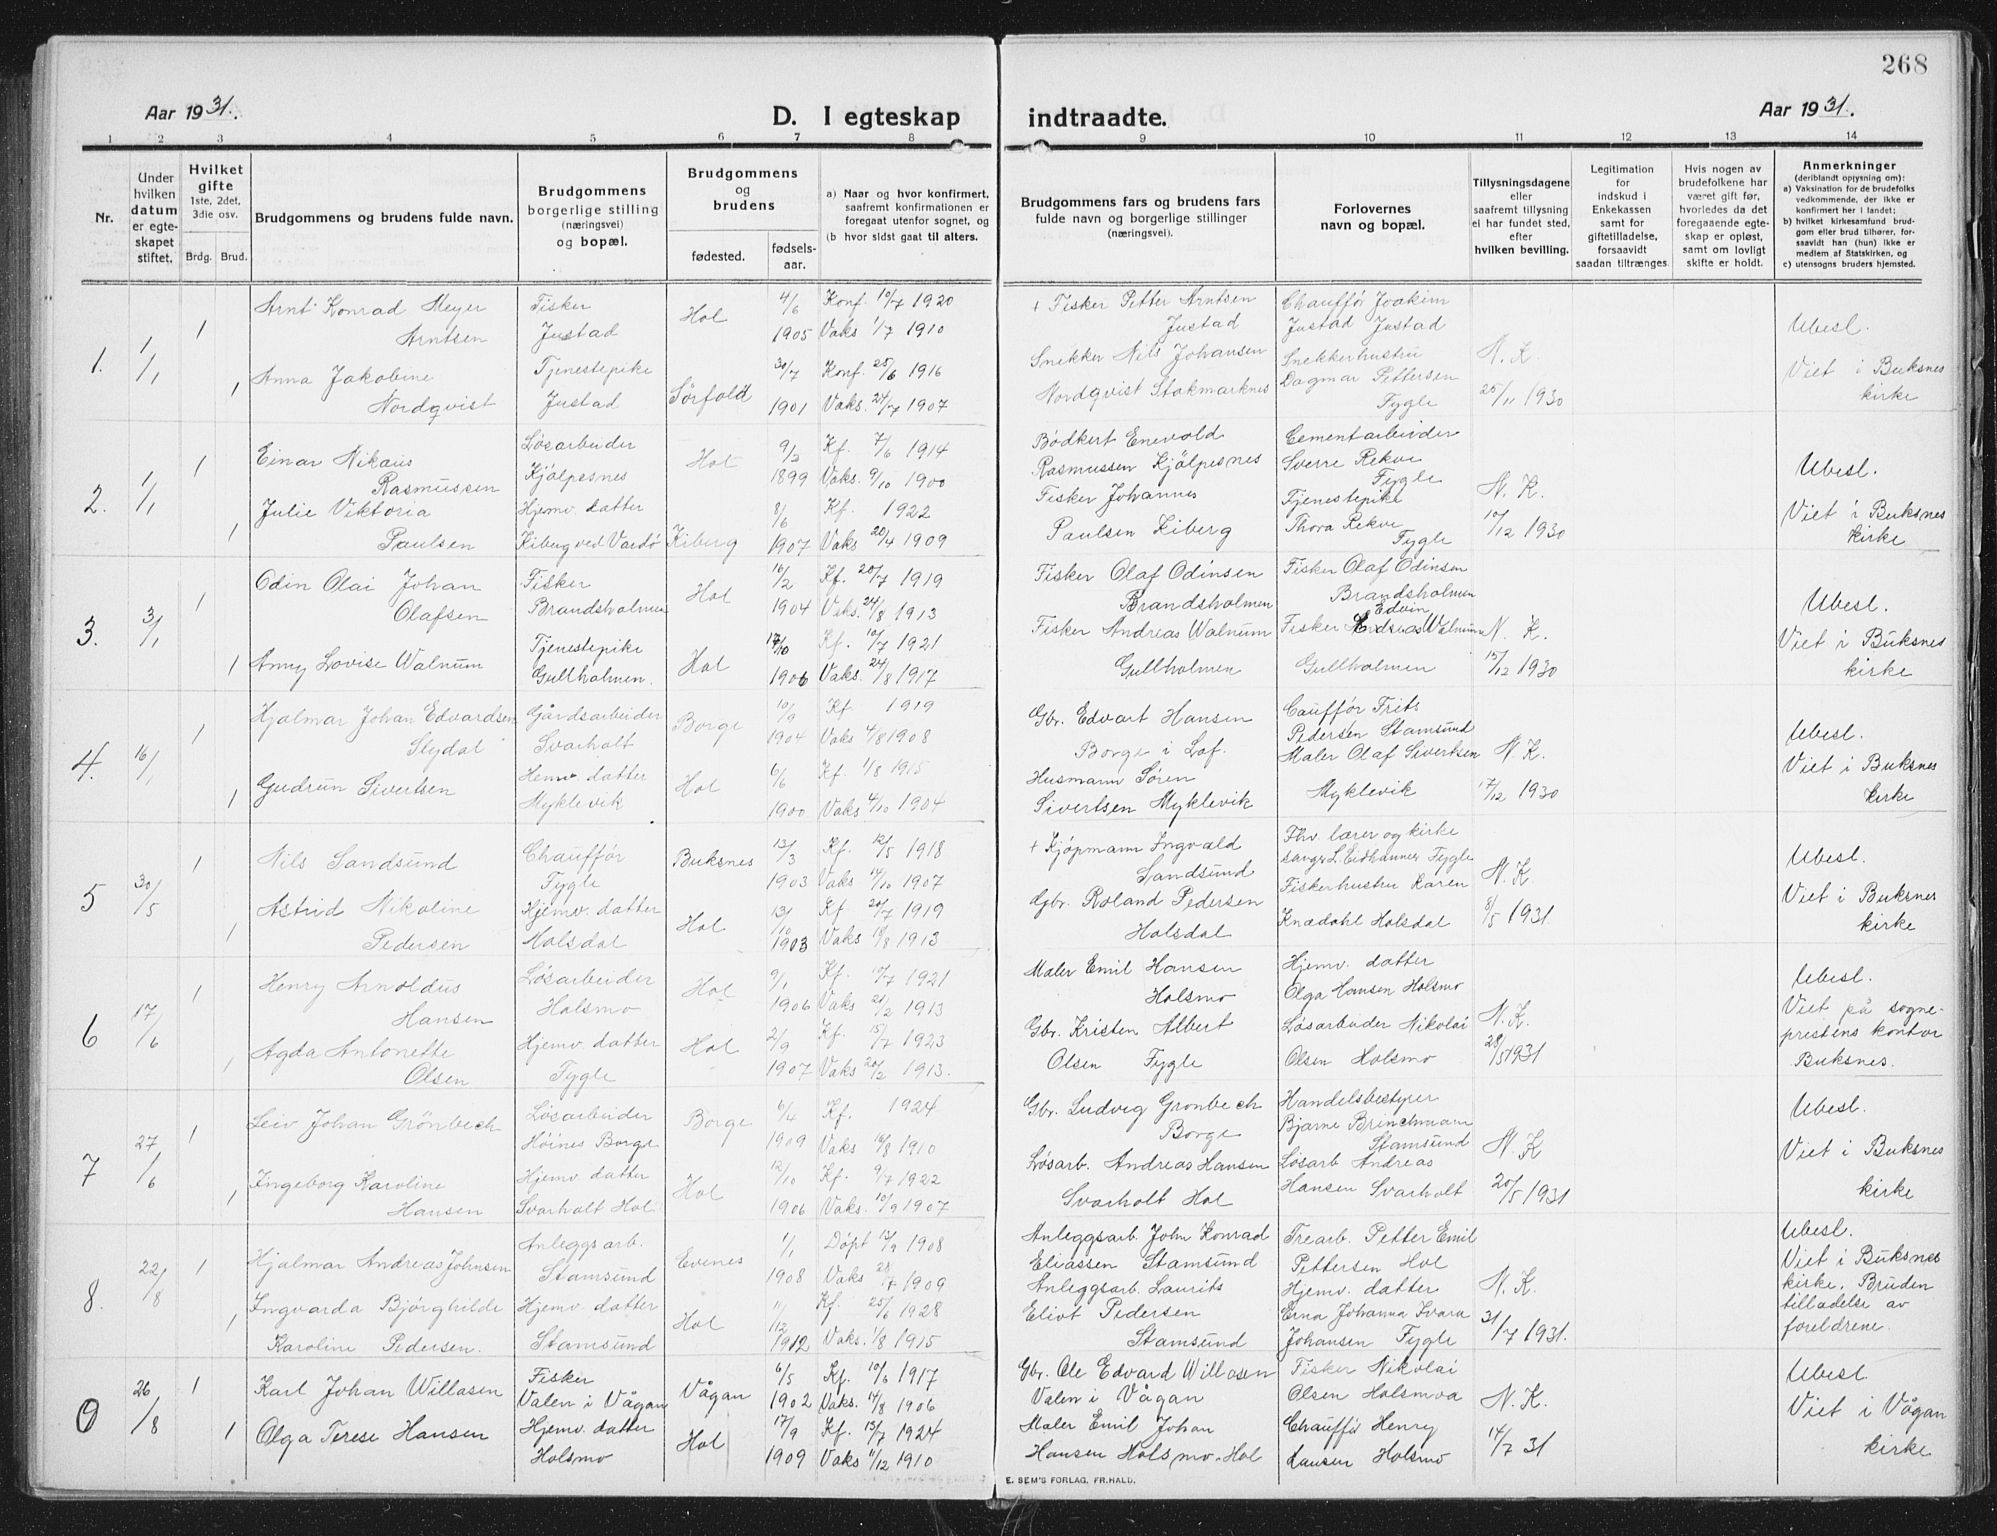 268
Aar 1931.
D. I egteskap indtraadte.
Aar 1931.
1 2 3 4 5 6 7 8 9 10 11 12 13 14
Nr.
Under hvilken datum er egteskapet stiftet.
Hvilket gifte 1ste, 2det, 3die osv.
Brdg. Brud.
Brudgommens og brudens fulde navn.
Brudgommens borgerlige stilling (næringsvei) og bopæl.
Brudgommens og brudens
fødested.
fødselsaar.
a) Naar og hvor konfirmert, saafremt konfirmationen er foregaat utenfor sognet, og
(b hvor sidst gaat til alters.
Brudgommens fars og brudens fars fulde navn og borgerlige stillinger (næringsvei).
Forlovernes navn og bopæl.
Tillysningsdagene eller saafremt tillysning ei har fundet sted, efter hvilken bevilling.
Legitimation for indskud i Enkekassen samt for giftetilladelse, forsaavidt saadan tiltrænges
Hvis nogen av brudefolkene har været gift før, hvorledes da det foregaaende egteskap er opløst, samt om lovligt skifte er holdt.
Anmerkninger
(deriblandt opjysning om):
a) Vaksination for de brudefolks vedkommende, der ikke er konfirmert her i landet;
b) hvilket kirkesamfund brudgom eller brud tilhører, forsaavidt han (hun) ikke er medlem af Statskirken, og
c) utensogns bruders hjemsted.
1. 1/1
1 Arnt Konrad Meyer Arntsen
Fisker Justad
Hol
4/6 1905
Konf. 10/7 1920
Vaks 1/7 1910
+ Fisker Petter Arntsen Justad
Chauffør Joakim Justad Justad
1 Anna Jakobine Nordqvist
Tjenestepike Justad
Sørfold
30/7 1901
Konf. 25/6 1916
Vaks. 24/7 1907
Snikker Nils Johansen Nordqvist Stokmarknes
Snekkerhustru Dagmar Pettersen Fygle
N. K. 25/11 1930
Ubesl.
Viet i Buksnes kirke
2. 1/1
1 Einar Nikaus Rasmussen
Løsarbeider Kjölpesnes
Hol
9/2 1899
Kf. 7/6 1914
Vaks. 9/10 1900
Bødkert Enevold Rasmussen Kjölpesnes
Cementarbeider Sverre Rekve Fygle
1 Julie Viktoria Paulsen
Hjemv. datter Kiberg ved Vardö
Kiberg
8/6 1907
Kf. 1922
Vaks 20/4 1909
Fisker Johannes Paulsen Kiberg
Tjenestepike Thora Rekve Fygle
N. K. 10/12 1930
Ubesl.
Viet i Buksnes kirke
3. 3/1
1 Odin Olai Johan Olafsen
Fisker Brandsholmen
Hol
16/2 1904
Kf. 20/7 1919
Vaks. 24/8 1913
Fisker Olaf Odinsen Brandsholmen
Fisker Olaf Odinsen Brandsholmen
1 Anny Lovise Walnum
Tjenestepike Gullholmen.
Hol
17/10 1906
Kf. 10/7 1921
Vaks. 24/8 1917
Fisker Andreas Walnum Gullholmen
Fisker Edvin Walnum Gullholmen
N. K. 15/12 1930
Ubesl.
Viet i Buksnes kirke
4. 16/1
1 Hjalmar Johan Edvardsen Slydal
Gårdsarbeider Svarholt
Borge
10/9 1904
Kf 1919
Vaks 4/8 1908
Gbr. Edvart Hansen Borge i Lof.
Cauffør Frits Pedersen Stamsund
1 Gudrun Sivertsen
Hemv. datter Myklevik
Hol
6/6 1900
Kf. 1/8 1915
Vaks 4/10 1904
Husmann Søren Sivertsen Myklevik
Maler Olaf Sivertsen Myklevik
N. K. 17/12 1930
Ubesl.
Viet i Buksnes kirke
5 30/5
1 Nils Sandsund
Chauffør Fygle
Buksnes
13/3 1903
Kf. 12/5 1918
Vaks 14/10 1907
+ Kjøpmann Ingvald Sandsund
Fhv. lærer og kirkesanger L. Eidhammer Fygle
1 Astrid Nikoline Pedersen
Hjemv. datter Holsdal
Hol
13/10 1903
Kf 20/7 1919
Vaks 18/8 1913
Gbr. Roland Pedersen Holsdal
Fiskerhustru Karen Knædahl Holsdal
N. K. 8/5 1931
Ubesl.
Viet i Buksnes kirke
6 17/6
1 Henry Arnoldus Hansen
Løsarbeider Holsmo
Hol
9/1 1906
Kf. 10/7 1921
Vaks 21/2 1913
Maler Emil Hansen Holsmo
Hjemv. datter Olga Hansen Holsmo
1 Agda Antonette Olsen
Hjemv. datter Fygle
Hol
2/9 1907
Kf. 15/7 1923
Vaks 20/2 1913.
Gbr. Kristen Albert Olsen Fygle
Løsarbeider Nikolai Olsen Holsmo
N. K. 28/5 1931
Ubesl.
Viet på sogneprestens kontor Buksnes.
7 27/6
1 Leiv Johan Grönbech
Løsarbeider Höines Borge
Borge
6/4 1909
Kf. 1924
Vaks 16/8 1910
Gbr. Ludvig Gronbech Borge
Handelsbestyrer Bjarne Brinchmann Stamsund
1 Ingeborg Karoline Hansen
Hjemv datter Svarholt Hol
Hol
12/10 1906
Kf. 9/7 1922
Vaks. 10/9 1907
Løsarb. Andreas Hansen Svarholt Hol
Løsarb Andreas Hansen Svarholt
N. K 20/5 1931
Ubesl.
Viet i Buksnes kirke
8. 22/8
1 Hjalmar Andreas Johnsen
Anleggsarb. Stamsund
Evenes
1/1 1908
Döpt 13/9 1908
Vaks 28/7 1909
Anleggsarb. John Konrad Eliassen Stamsund
Trearb. Petter Emil Pettersen Hol
1 Ingvarda Bjørghilde Karoline Pedersen.
Hjemv. datter Stamsund
Hol
11/12 1912
Kf. 25/6 1928
Vaks. 1/8 1915
Anleggsarb. Laurits Eliot Pedersen Stamsund
Hjemv. datter Erna Johanna Ivara Johansen Fygle
N. K. 31/7 1931.
Ubesl.
Viet i Buksnes kirke. Bruden tilladelse av foreldrene.
9 26/8
1 Karl Johan Willasen
Fisker Valen i Vågan
Vågan
6/5 1902
Kf. 10/6 1917
Vaks. 14/8 1906
Gbr. Ole Edvard Willasen Valen i Vågan
Fisker Nikolai Olsen Holsmoa
1 Olga Terese Hansen
Hjemv. datter Holsmo
Hol
17/9 1909
Kf. 13/7 1924
Vaks 11/12 1910
Maler Emil Johan Hansen Holsmo - Hol
Chauffør Henry Hansen Holsmo
N. K. 14/7 31
Ubesl
Viet i Vågan kirke
E. SEM'S FORLAG, FR.HALD.